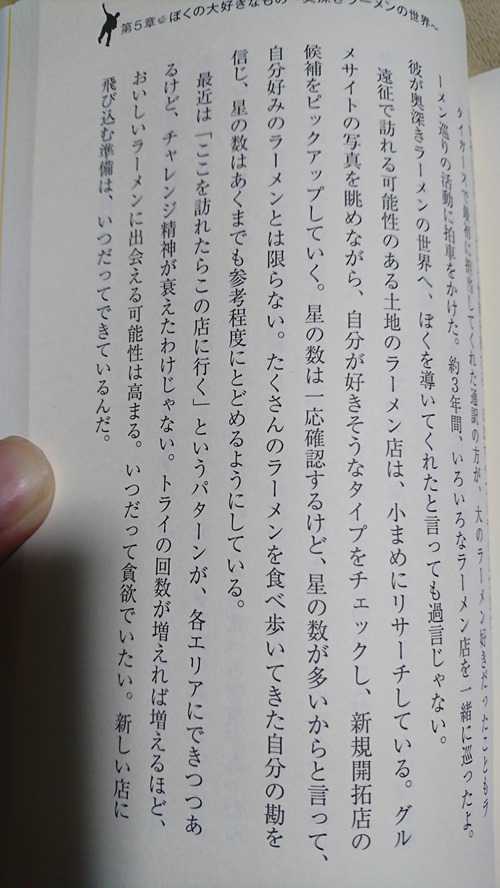 第5章 ぼくの大好きなもの ラーメンの世界へ
してくれた通訳の方が、大のラーメン好きだったこともラ
ーメン巡りの活動に拍車をかけた。約3年間、いろいろなラーメン店を一緒に巡ったよ。
彼が奥深きラーメンの世界へ、ぼくを導いてくれたと言っても過言じゃない。
遠征で訪れる可能性のある土地のラーメン店は、小まめにリサーチしている。グル
メサイトの写真を眺めながら、自分が好きそうなタイプをチェックし、新規開拓店の
候補をピックアップしていく。星の数は一応確認するけど、星の数が多いからと言って、
自分好みのラーメンとは限らない。たくさんのラーメンを食べ歩いてきた自分の勘を
信じ、星の数はあくまでも参考程度にとどめるようにしている。
最近は「ここを訪れたらこの店に行く」というパターンが、各エリアにできつつあ
るけど、チャレンジ精神が衰えたわけじゃない。トライの回数が増えれば増えるほど、
おいしいラーメンに出会える可能性は高まる。いつだって貪欲でいたい。新しい店に
飛び込む準備は、いつだってできているんだ。